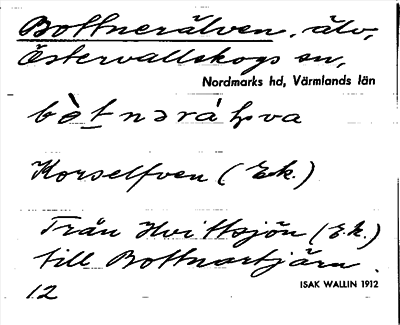 Bottnerälven, älv,
Östervallskogs sn,
Nordmarks hd, Värmlands län
Korselfven (Ek.)
Från Hvittsjön (E.k.)
till Bottnartjärn
12
ISAK WALLIN 1912